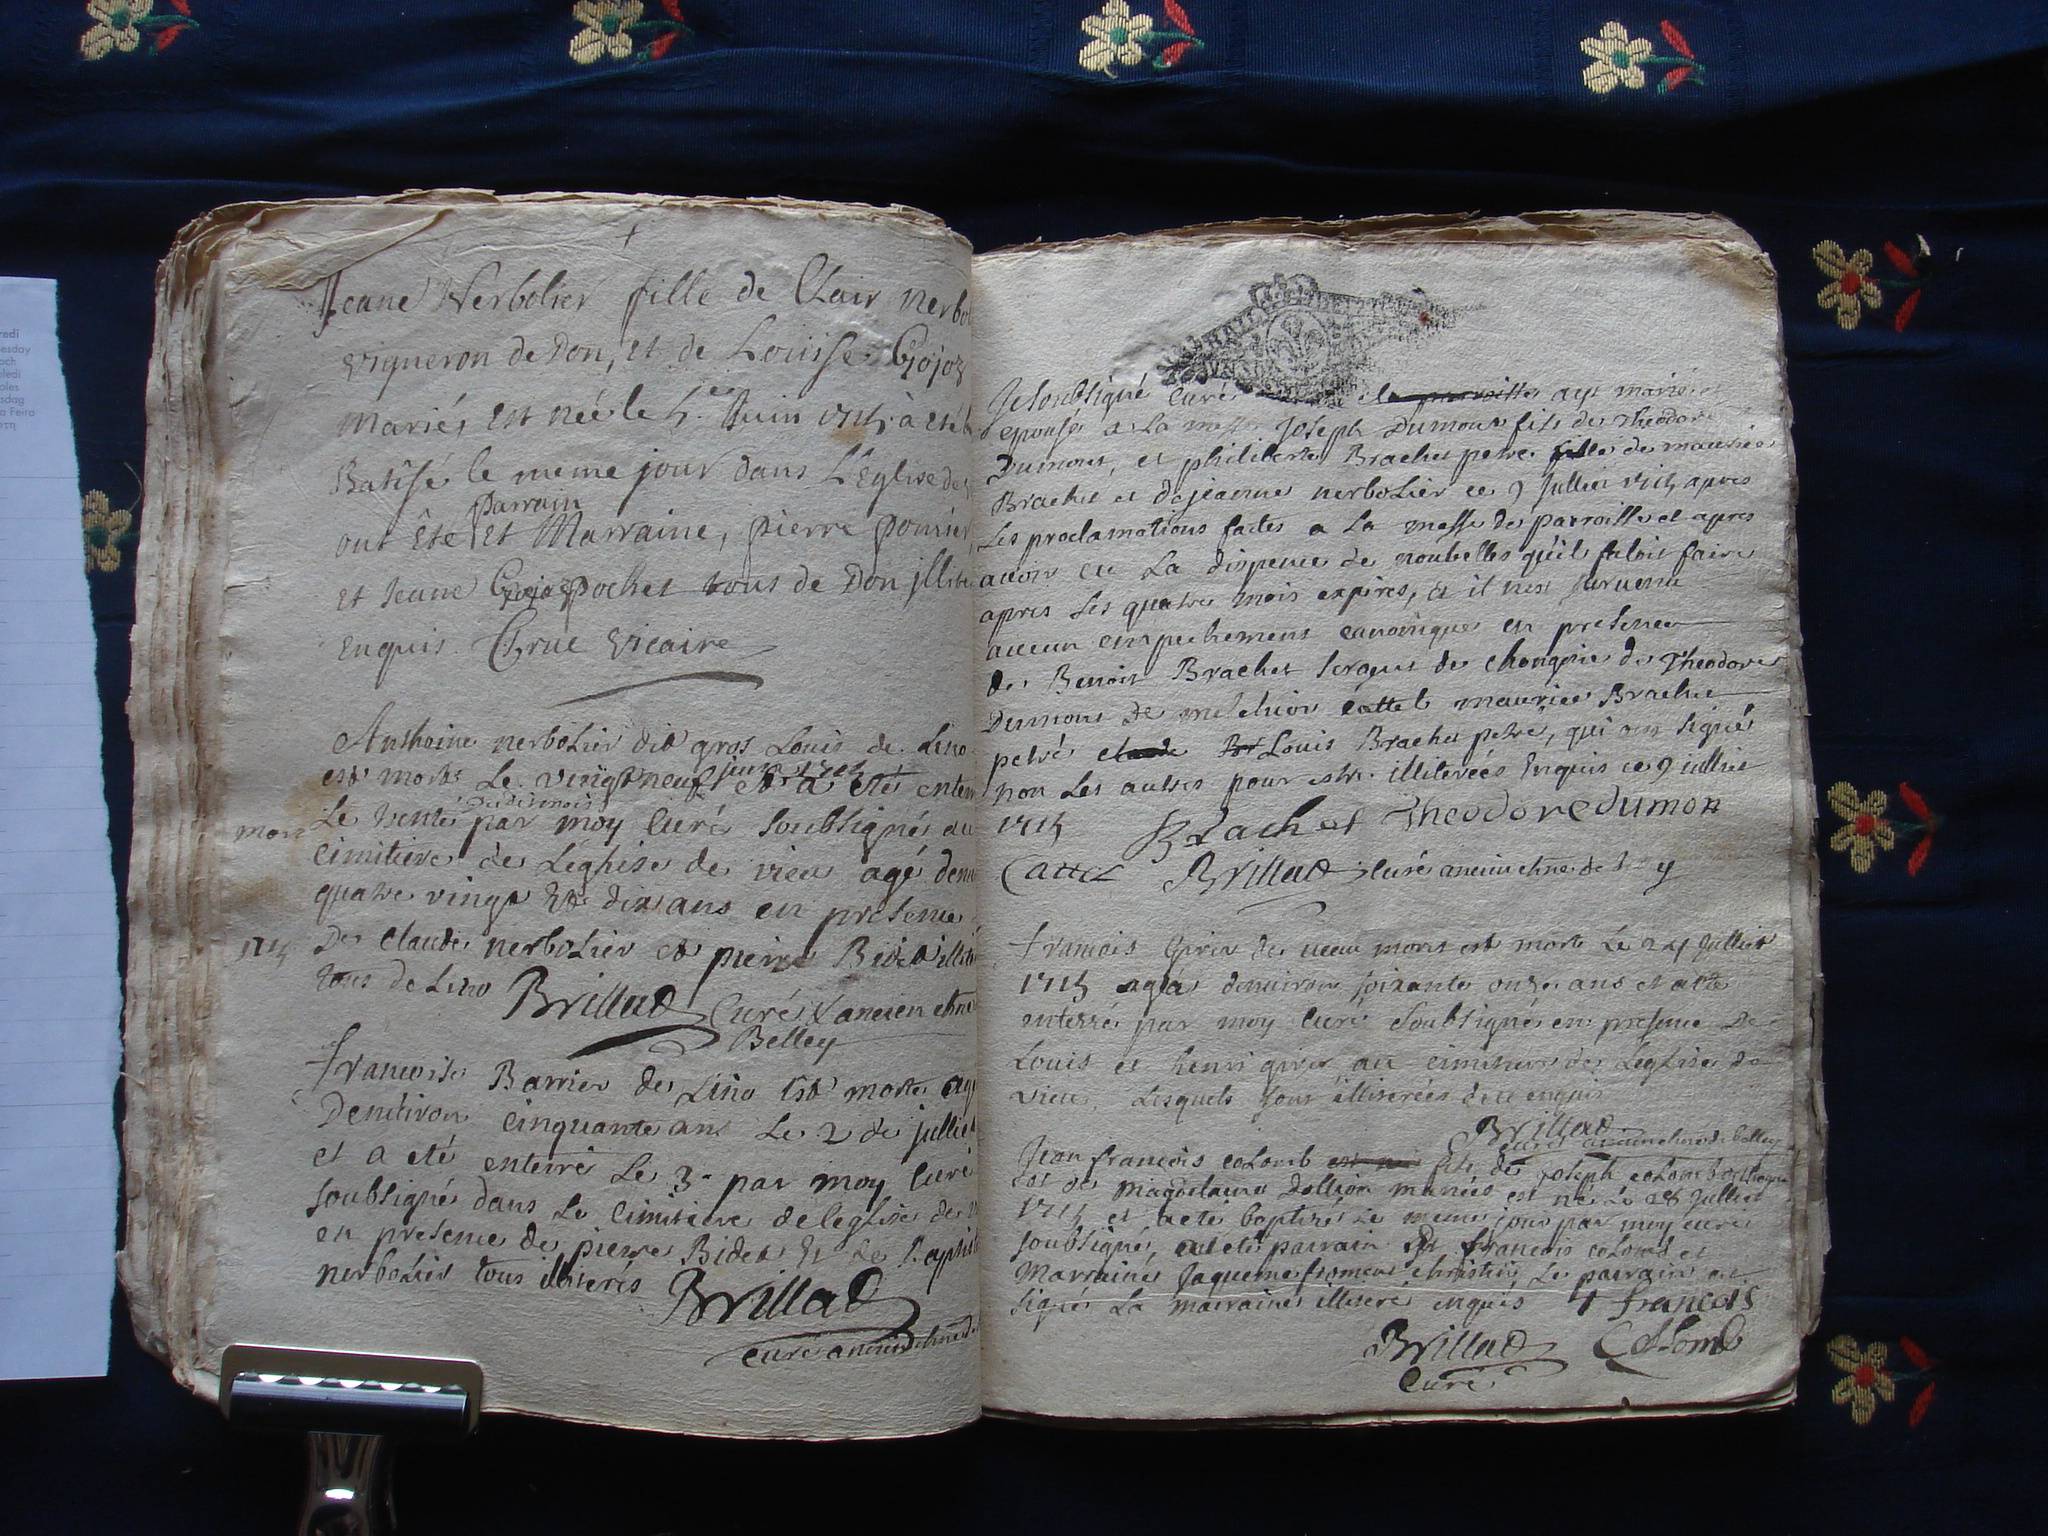 Jeane Nerbolier fille de Clair nerbo
vigneron de Don, et de Louisse Gojoz
Mariés est néé le 5.e Juin 1715 à eté
Batisé le meme jour dans L'Eglise de
parrain
ont êté et Marraine, pierre pourier
et Jeane Gojoz pochet tous de Don jllite
Enquis. Grue vicaire
Anthoine nerbolier dit gros Louis de Lino
juin 1715
est morts Le vingt neuf et a eté enterr
dudit mois
mort Le trente par moy Curé soubsigné au
cimitiere de Leghise de vieu agé denv
quatre vingt et dix ans en presence
1715 De claude nerbolier et pierre Bidet illite
tous de Lino Brillat Curé & ancien chne
Belley
francoise Barrier de Lino est morte agé
Denviron cinquante ans Le 2 de julliet
et a eté enterré Le 3e par moy Curé
soubsigné dans Le Cimitiere de leglise de v
en presence de pierre Bidet et de J. baptis
nerbolier tous illiterés Brillat
curé ancien chne de
Je soubsigné curé de parroisse ayt marié et
epousé a La messe Joseph Dumont fils de Theodore
Dumont, et philiberte Brachet petre fille de maurice
Brachet et de jeanne nerbolier ce 9 Jullier 1715 apres
Les proclamations faites a La messe de parroisse et apres
avoir eu La dispence de noubelles quil faloit faire
apres Les quatre mois expirés, & il nest survenu
aucun empechement canonique en presence
de Benoit Brachet sergent de chongnie de Theodore
Dumont de melchior cattet maurice Brachet
petre Louis Brachet petre, qui ont signé
non Les autres pour estre illiterées Enquis ce 9 jullie
1715 Brachet Theodore dumon
Cattet Brillat Curé ancien chne de B y
francois Girer de vieu mort est morte Le 24 Julliet
1715 agéé denviron soixante onze ans et a eté
enterré par moy Curé Soubsigné en presence De
Louis et henri girer au cimitiere de Leglise de
vieu, Lesquels sont illiterées de ce enquis
Brillat
curé ancien chne de belley
Jean francois colomb fils de joseph colomb
et de Magdelaine Dollion mariés est né Le 28 Julliet
1715 et a eté baptizé Le meme jour par moy curé
soubsigné, a eté parrain francois colomb et
Marraine Jaqueme froment christin, Le parrain a
signé La marraine illiteré enquis francois
Brillat Collomb
Curé